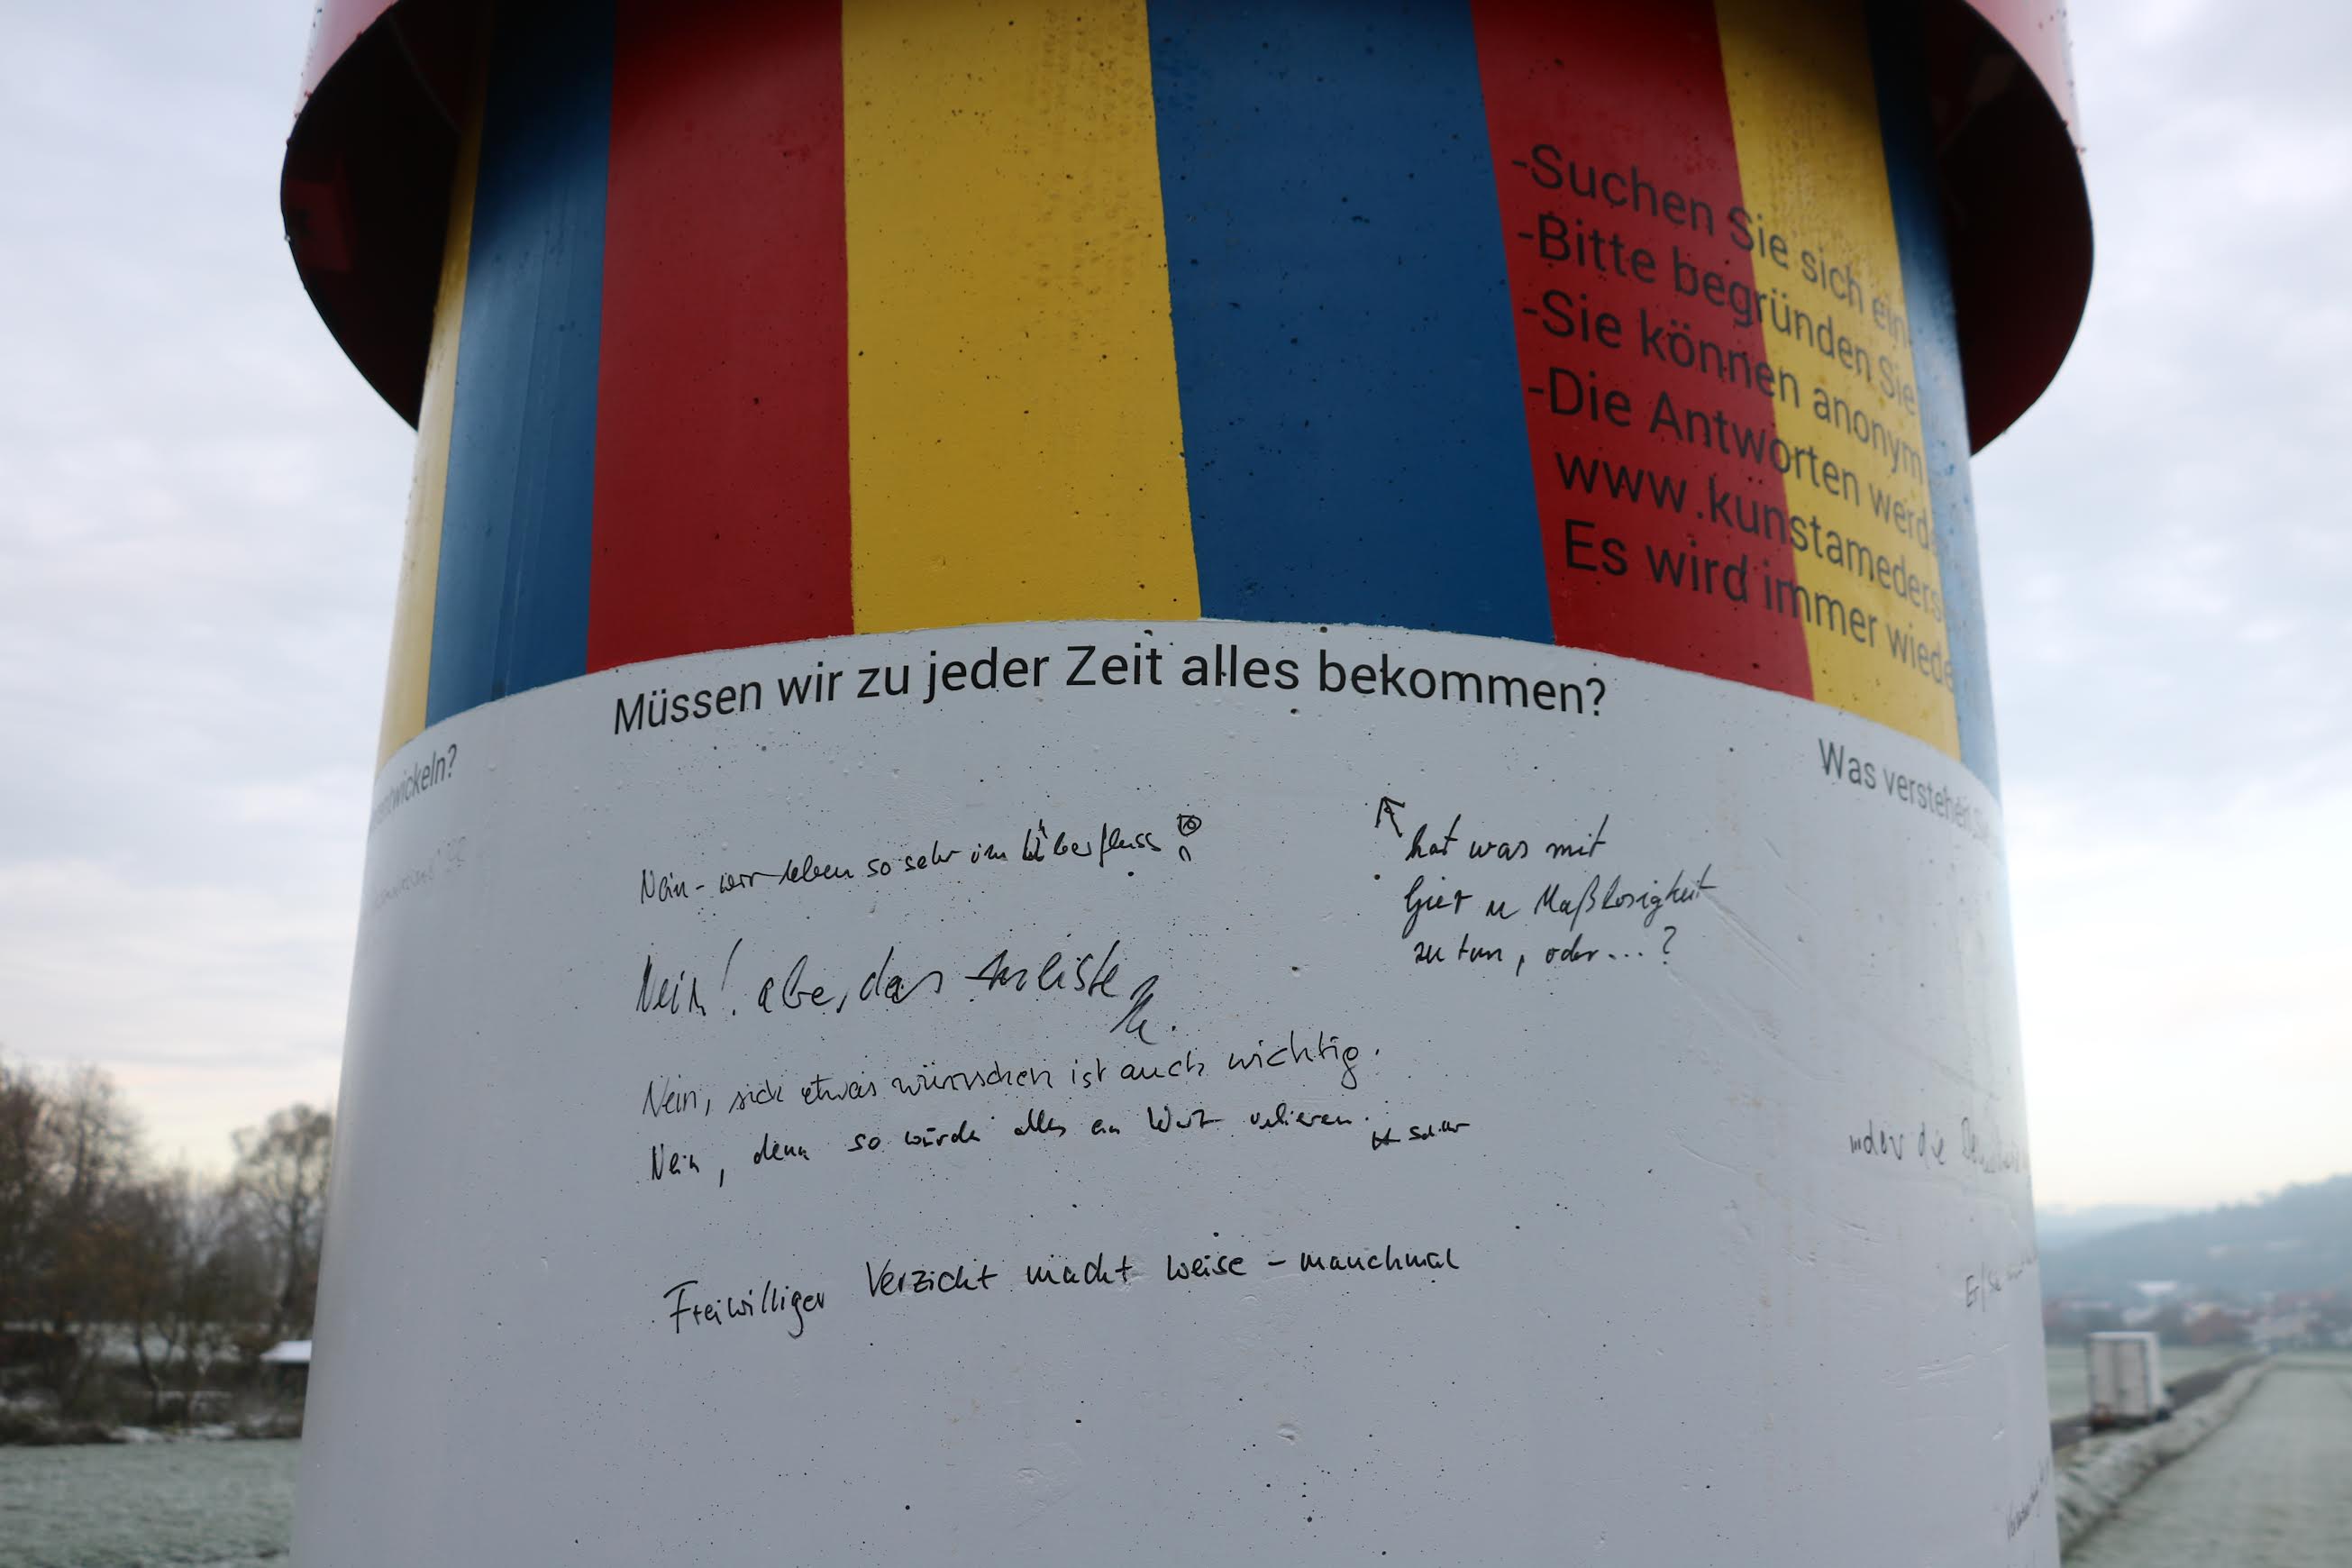 -Suchen Sie sich ein
-Bitte begründen Sie
-Sie können anonym
-Die Antworten werd
www.kunstameders
Es wird immer wiede
entwickeln?
Müssen wir zu jeder Zeit alles bekommen?
Was verstehen
Nein - wir leben so sehr im Überfluss
hat was mit
Gier u Maßlosigkeit
zu tun, oder...?
Nein! aber das
Nein, sich etwas wünschen ist auch wichtig.
Nein, denn so würde alles an Wert verlieren.
Freiwilliger Verzicht macht weise - manchmal
die